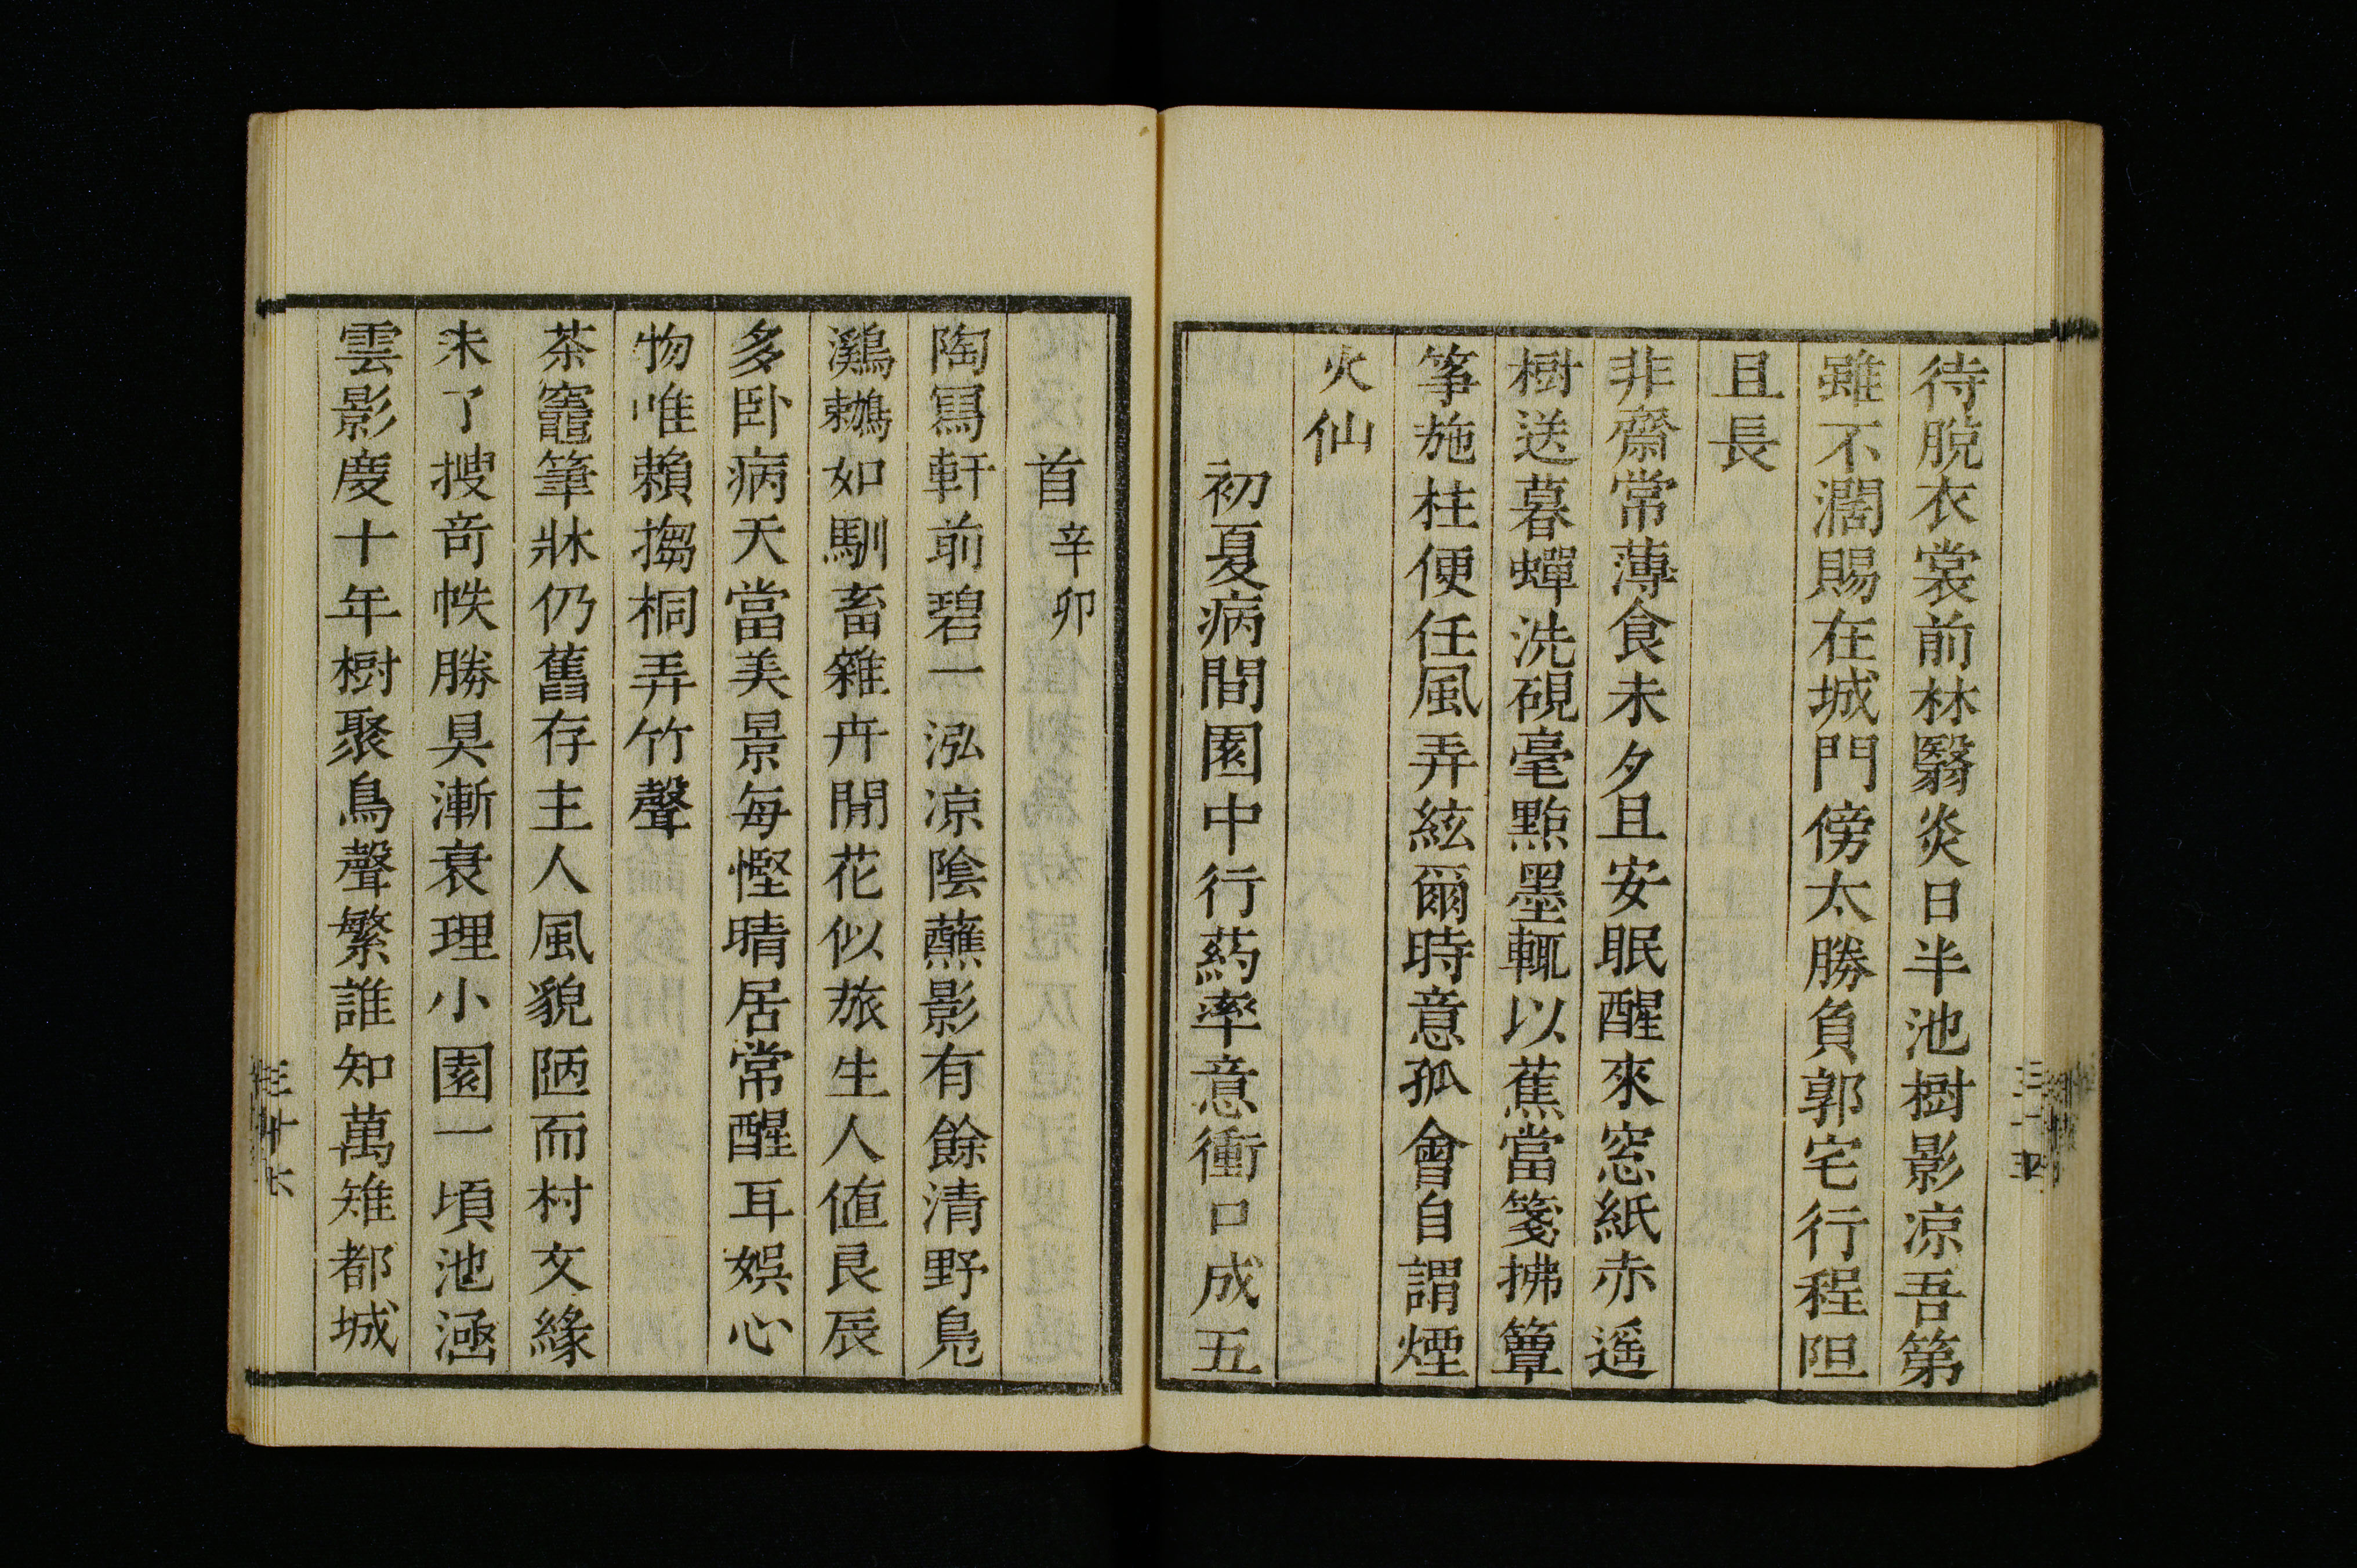 待脫衣裳前林翳炎日半池樹影凉吾第
雖不濶賜在城門傍太勝負郭宅行程阻
且長
非齋常薄食未夕且安眠醒來窓紙赤遥
樹送暮蟬洗硯毫㸃墨輒以蕉當箋拂簟
筝施柱便任風弄絃爾時意孤會自謂煙
火仙
初夏病間園中行葯率意衝口成五
首辛卯
陶寫軒前碧一泓凉陰蘸影有餘清野鳧
鸂鶒如馴畜雜卉閒花似旅生人值良辰
多卧病天當美景每慳晴居常醒耳娛心
物唯賴搊桐弄竹聲
茶竈筆牀仍舊存主人風貌陋而村文緣
未了搜奇帙勝具漸衰理小園一頃池涵
雲影慶十年樹聚鳥聲繁誰知萬雉都城
三十六